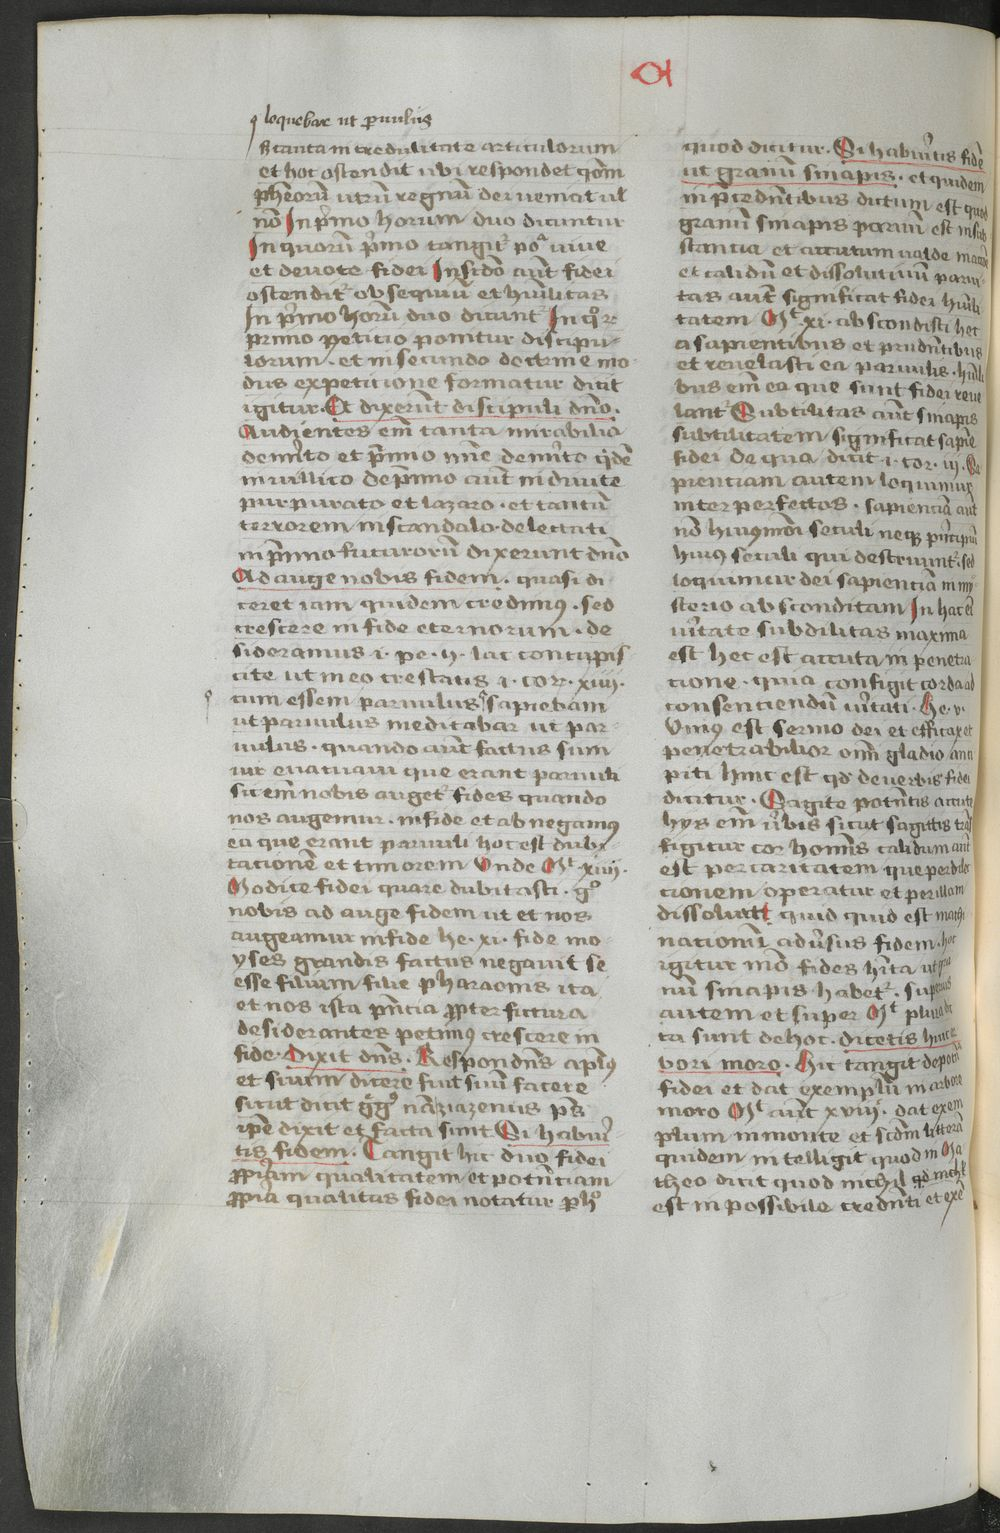 loquebar ut puulus
& tanta in credulitate articulorum
et hoc ostendit ubi respondet qōm
ph̄eorū utrū regnū dei venit ul
nō In pͥmo horum duo dicuntur
In quorū pͥmo tangitᷣ poᵃ uiue
et deuote fidei In sc̄do aūt fidei
ostenditᷣ obsequiū et hūilitas
In pͥmo horū duo dicuntᷣ In qͦꝝ
primo peticio ponitur discipu-
lorum · et in secundo doctrine mo
dus ex peticione formatur dicit
igitur · Et dixerūt discipuli dn̄o ·
Audientes em̄ tanta mirabilia
de mͥto et p̄mio
in uillico de p̄mio aūt in diuite
purpurato et lazaro · et tantū
terrorem in scandalo · delectati
in p̄mio futurorū dixerunt dn̄o
Ad auge nobis fidem · quasi di
ceret iam quidem credimꝰ · sed
crescere in fide eternorum · de
sideramus i · pe · ij · lac concupis
cite ut in eo crescatis i · cor · xiij ·
cum essem paruulus sapiebam
ut paruulus meditabar ut par-
uulus · quando aūt factus sum
uir euacuaui que erant paruuli
sic em̄ nobis augetᷣ fides quando
nos augemur · in fide et abnegamꝰ
ea que erant paruuli hoc est dubi-
tacionē et timorem Unde Mͭ xiiij ·
Modice fidei quare dubitasti · gͦ
nobis ad auge fidem ut et nos
augeamur in fide he · xi · fide mo-
yses grandis factus negauit se
esse filium filie pharaonis ita
et nos ista pn̄tia ꝓpter futura
desiderantes petimꝰ crescere in
fide · Dixit dn̄s · Respon dn̄s aplꝰ
et suum dicere fuit suū facere
sicut dicit gͥgͦ nāziazenus ip̄s
ip̄e dixit et facta sunt Si habuͥ-
tis fidem · Tangit hic duo fidei
ꝓpͥam qualitatem et potn̄ciam
ꝓpͥa qualitas fidei notatur ꝑ hͦ
quod dicitur · Si habuͥtis fidē
ut granū sinapis · et quidem
in p̄cedn̄tibus dictum est quod
granū sinapis paruū est in sub
stancia et accutum ualde
et calidū et dissolutiuū parui-
tas aūt significat fidei hūili
tatem Mͭ xi · abscondisti hec
a sapientibus et prudn̄tibus
et reuelasti ea paruulis · hūili
bus em̄ ea que sunt fidei reue
lantᷣ Subtilitas aūt sinapis
subtilitatem significat sapīe
fidei de qua dicit i · cor · iij · Sa
pienciam autem loquimur
inter perfectos · sapienciā aūt
nō huiꝰmodi seculi neqꝫ pͥncipū
huiꝰ seculi qui destruuntᷣ · sed
loquimur dei sapienciā in my-
sterio absconditam In hac
uͥtate subdilitas maxima
est hec est accuta in penetra
cione · quia configit corda ad
consenciendū uͥtati · he · v ·
Uiuꝰ est sermo dei et efficax et
penetrabilior om̄i gladio anci
piti hinc est qd̄ de uerbis fidei
dicitur · Sagite potn̄tis accute
hys em̄ uͥbis sicut sagittis trās
figitur cor hoīnis calidum aūt
est per caritatem que per dilec
cionem operatur et per illam
dissoluit quid quid est machi
nacionū aduͥsus fidem · hoc
igitur mō fides hīta ut gra
nū sinapis habetᷣ · superius
autem et super Mͭ plura dic
ta sunt de hoc · dicetis huic ar
bori moro · Hic tangit de potn̄a
fidei et dat exemplū in arbore
moro Mͭ aūt xviij · dat exem
plum in monte et scd̄m litterā
quidem intelligit quod in Ma
theo dicit quod nichil
est in possibile credn̄ti et exē